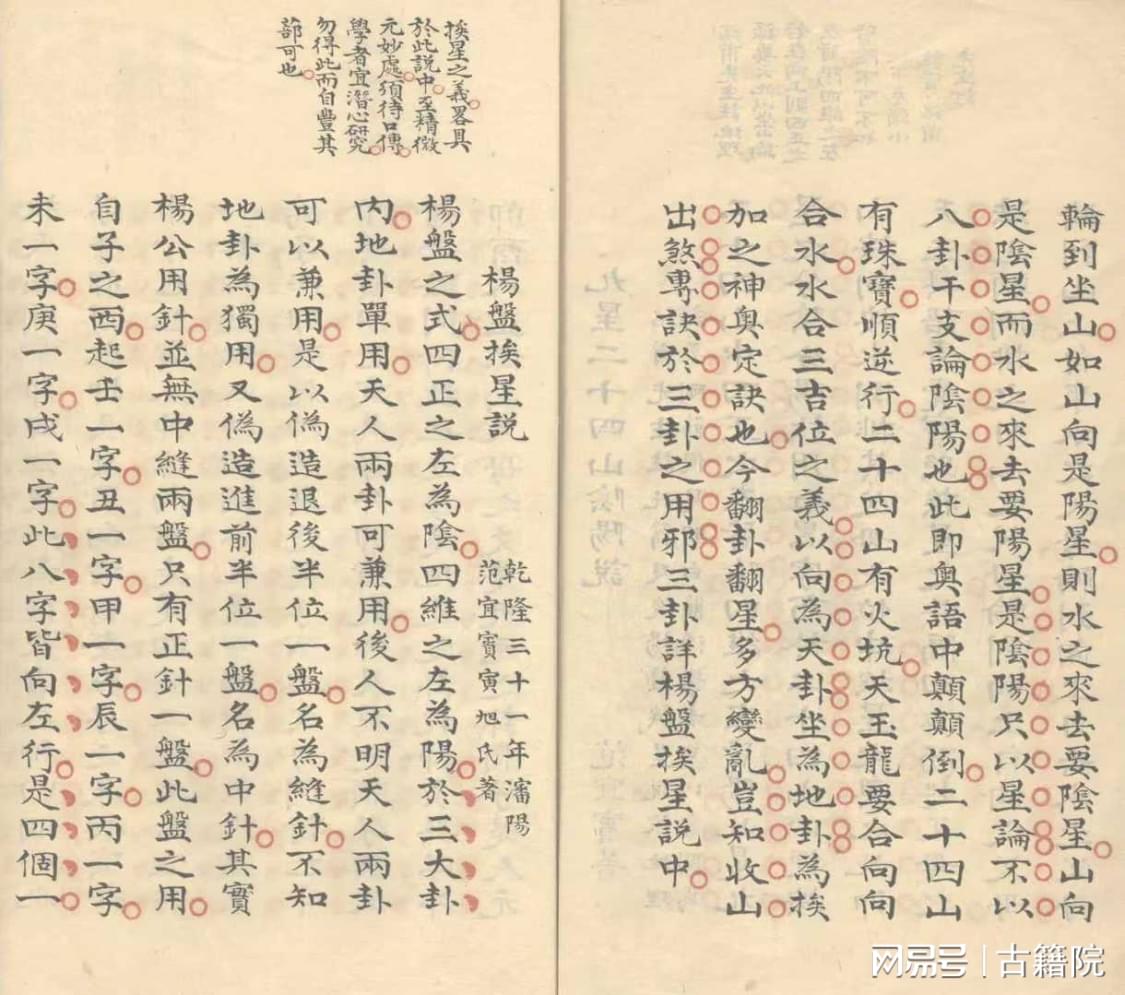 輪到坐山如山向是陽星則水之來去要陰星山向
是陰星而水之來去要陽星是陰陽只以星論不以
八卦干支論陰陽也此即奥語中顛顛倒二十四山
有珠寶順逆行二十四山有火坑天玉龍要合向向
合水水合三吉位之義以向為天卦坐為地卦為挨
加之神奥定訣也今翻卦翻星多方變亂豈知收山
出煞專訣於三卦之用邪三卦詳楊盤挨星説中
挨星之義畧具
於此説中至精微
元妙處須待口傳
學者宜潛心研究
勿得此而自豐其
蔀可也
楊盤挨星説
乾隆三十一年瀋陽
范宜賓寅旭氏著
楊盤之式四正之左為陰四維之左為陽於三大卦
内地卦單用天人兩卦可兼用後人不明天人兩卦
可以兼用是以偽造退後半位一盤名為縫針不知
地卦為獨用又偽造進前半位一盤名為中針其實
楊公用針並無中縫兩盤只有正針一盤此盤之用
自子之西起壬一字丑一字甲一字辰一字丙一字
未一字庚一字戌一字此八字皆向左行是四個一
网易号|古籍院